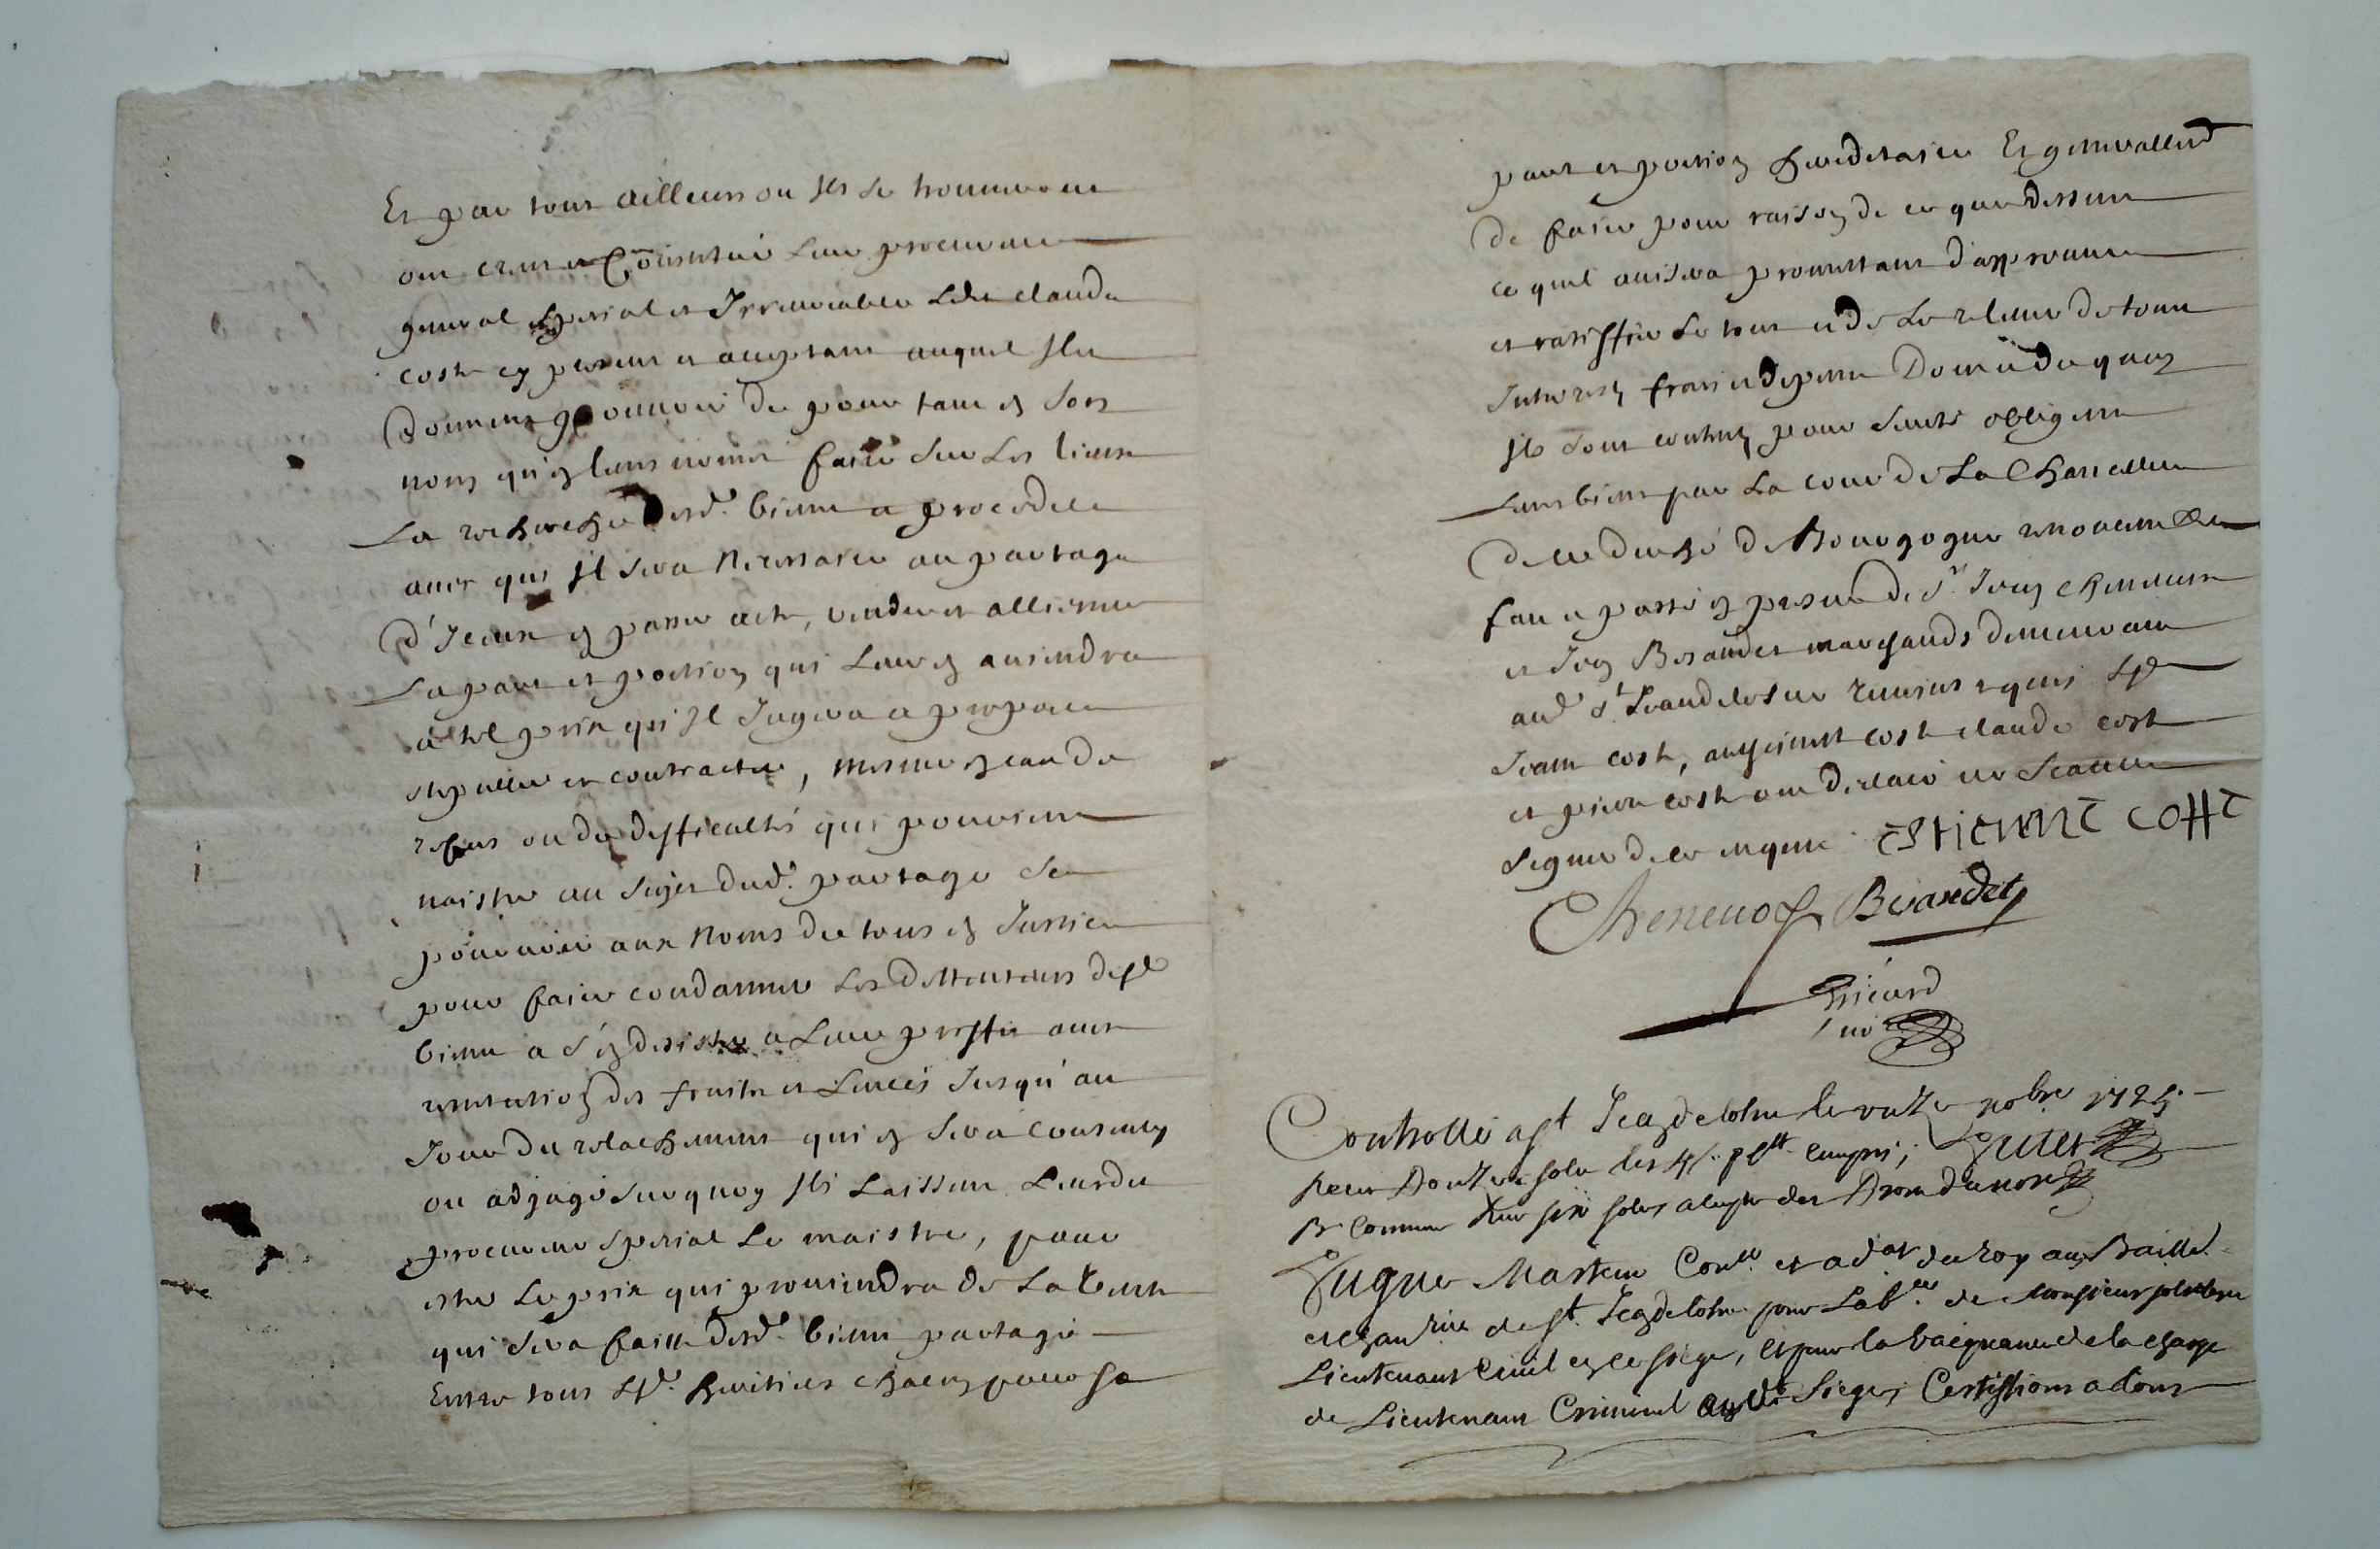 Et par tout ailleurs ou Ils se trouveront
ont créés et Constitué Leur procureur
general special et Irrevocable Ledit claude
coste cy present et acceptant auquel Ils
donnent pouvoir de pour tant en son
nom qu'en leurs noms faire sur Les lieux
La recherche desd. biens et proceder
avec qui Il sera Necessaire au partage
d'Iceux en passer acte, vendre et alliener
La part et portion qui Leur en aviendra
a tel prix qu'Il Jugera a propos
stipuller et contracter, mesme en cas de
refus ou de difficultés qui pouroient
naistre au sujet dud. partage se
pourvoir aux Noms de tous en Justice
pour faire condamner Les detenteurs desd
biens a s'en desister a Leur proffit avec
restitution des fruits et Levées Jusqu'au
Jour du relachement qui en sera consenty
ou adjugé surquoy Ils Laissent Leurdit
procureur special Le maistre, pour
estre Le prix qui proviendra de La vente
qui sera faitte desd. biens partagé
Entre tous Lsd. heritiers chacun pour sa
part et portion hereditaire Et generallemt
de faire pour raison de ce que dessus
ce quil avisera promettant d'approuver
et ratiffier Le tout et de Le relever de tous
Interests frais et depens Dont et de quoy
Ils sont contents pour seureté obligent
Leurs biens par La cour de La Chancellerie
de ce duché de Bourgogne renonceant &c
fait et passé en presence de Sr Jean chenevox
et Jean Beraudet marchands demeurant
aud St Jeandelosne temoins requis Lsd
Jeanne coste, anthoinette coste claude coste
et pierre coste ont declaré ne scavoir
signer de ce enquis EStiENNE COttE
Chenevox Beraudet
Controllé a St Jean delosne le onze nobre 172
Receu Douze sols les 4s. pr lt compris;
Et Comme Receu six sols, a
Hugue Martene Conller et advat du roy au Bailld
et chan rie de St. Jean delosne pour Labce de Monsieur
Lieutenant Civil en ce siege, et pour la vacquance de la charge
de Lieutenant Criminel aud. Siege, Certiffions a tous